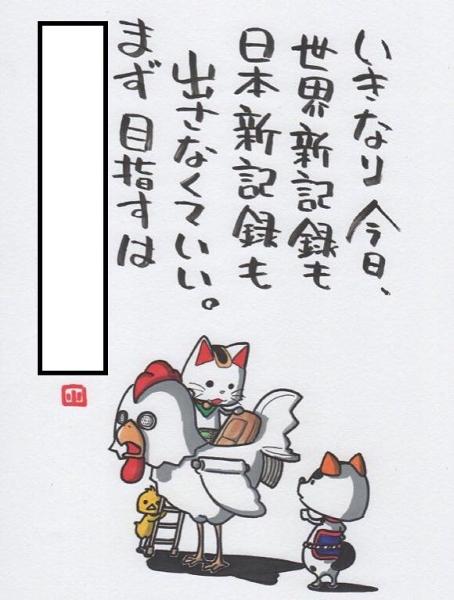 いきなり今日、
世界新記録も
日本新記録も
出さなくていい。
まず目指すは